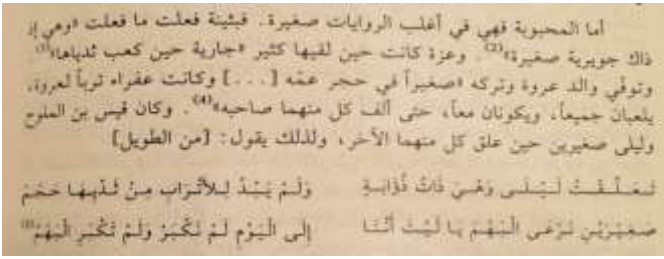 أما المحبوبة فهي في أغلب الروايات صغيرة. فبثينة فعلت ما فعلت «وهي إذ
ذاك جويرية صغيرة»(2). وعزة كانت حين لقيها كثير «جارية حين كعب ثدياها»(3).
وتوفّي والد عروة وتركه «صغيراً في حجر عمّه [...] وكانت عفراء ترباً لعروة،
يلعبان جميعاً، ويكونان معاً، حتى ألف كل منهما صاحبه»(4). وكان قيس بن الملوح
وليلى صغيرين حين علق كل منهما الآخر، ولذلك يقول: [من الطويل]
تَعَلَّقْتُ لَيْلَى وَهْيَ ذَاتُ ذُؤَابَةٍ وَلَمْ يَبْدُ لِلأَتْرَابِ مِنْ ثَدْيِهَا حَجْمُ
صَغِيرَيْنِ نَرْعَى الْبَهْمَ يَا لَيْتَ أَنَّنَا إِلَى الْيَوْمِ لَمْ نَكْبَرْ وَلَمْ تَكْبَرِ الْبَهْمُ